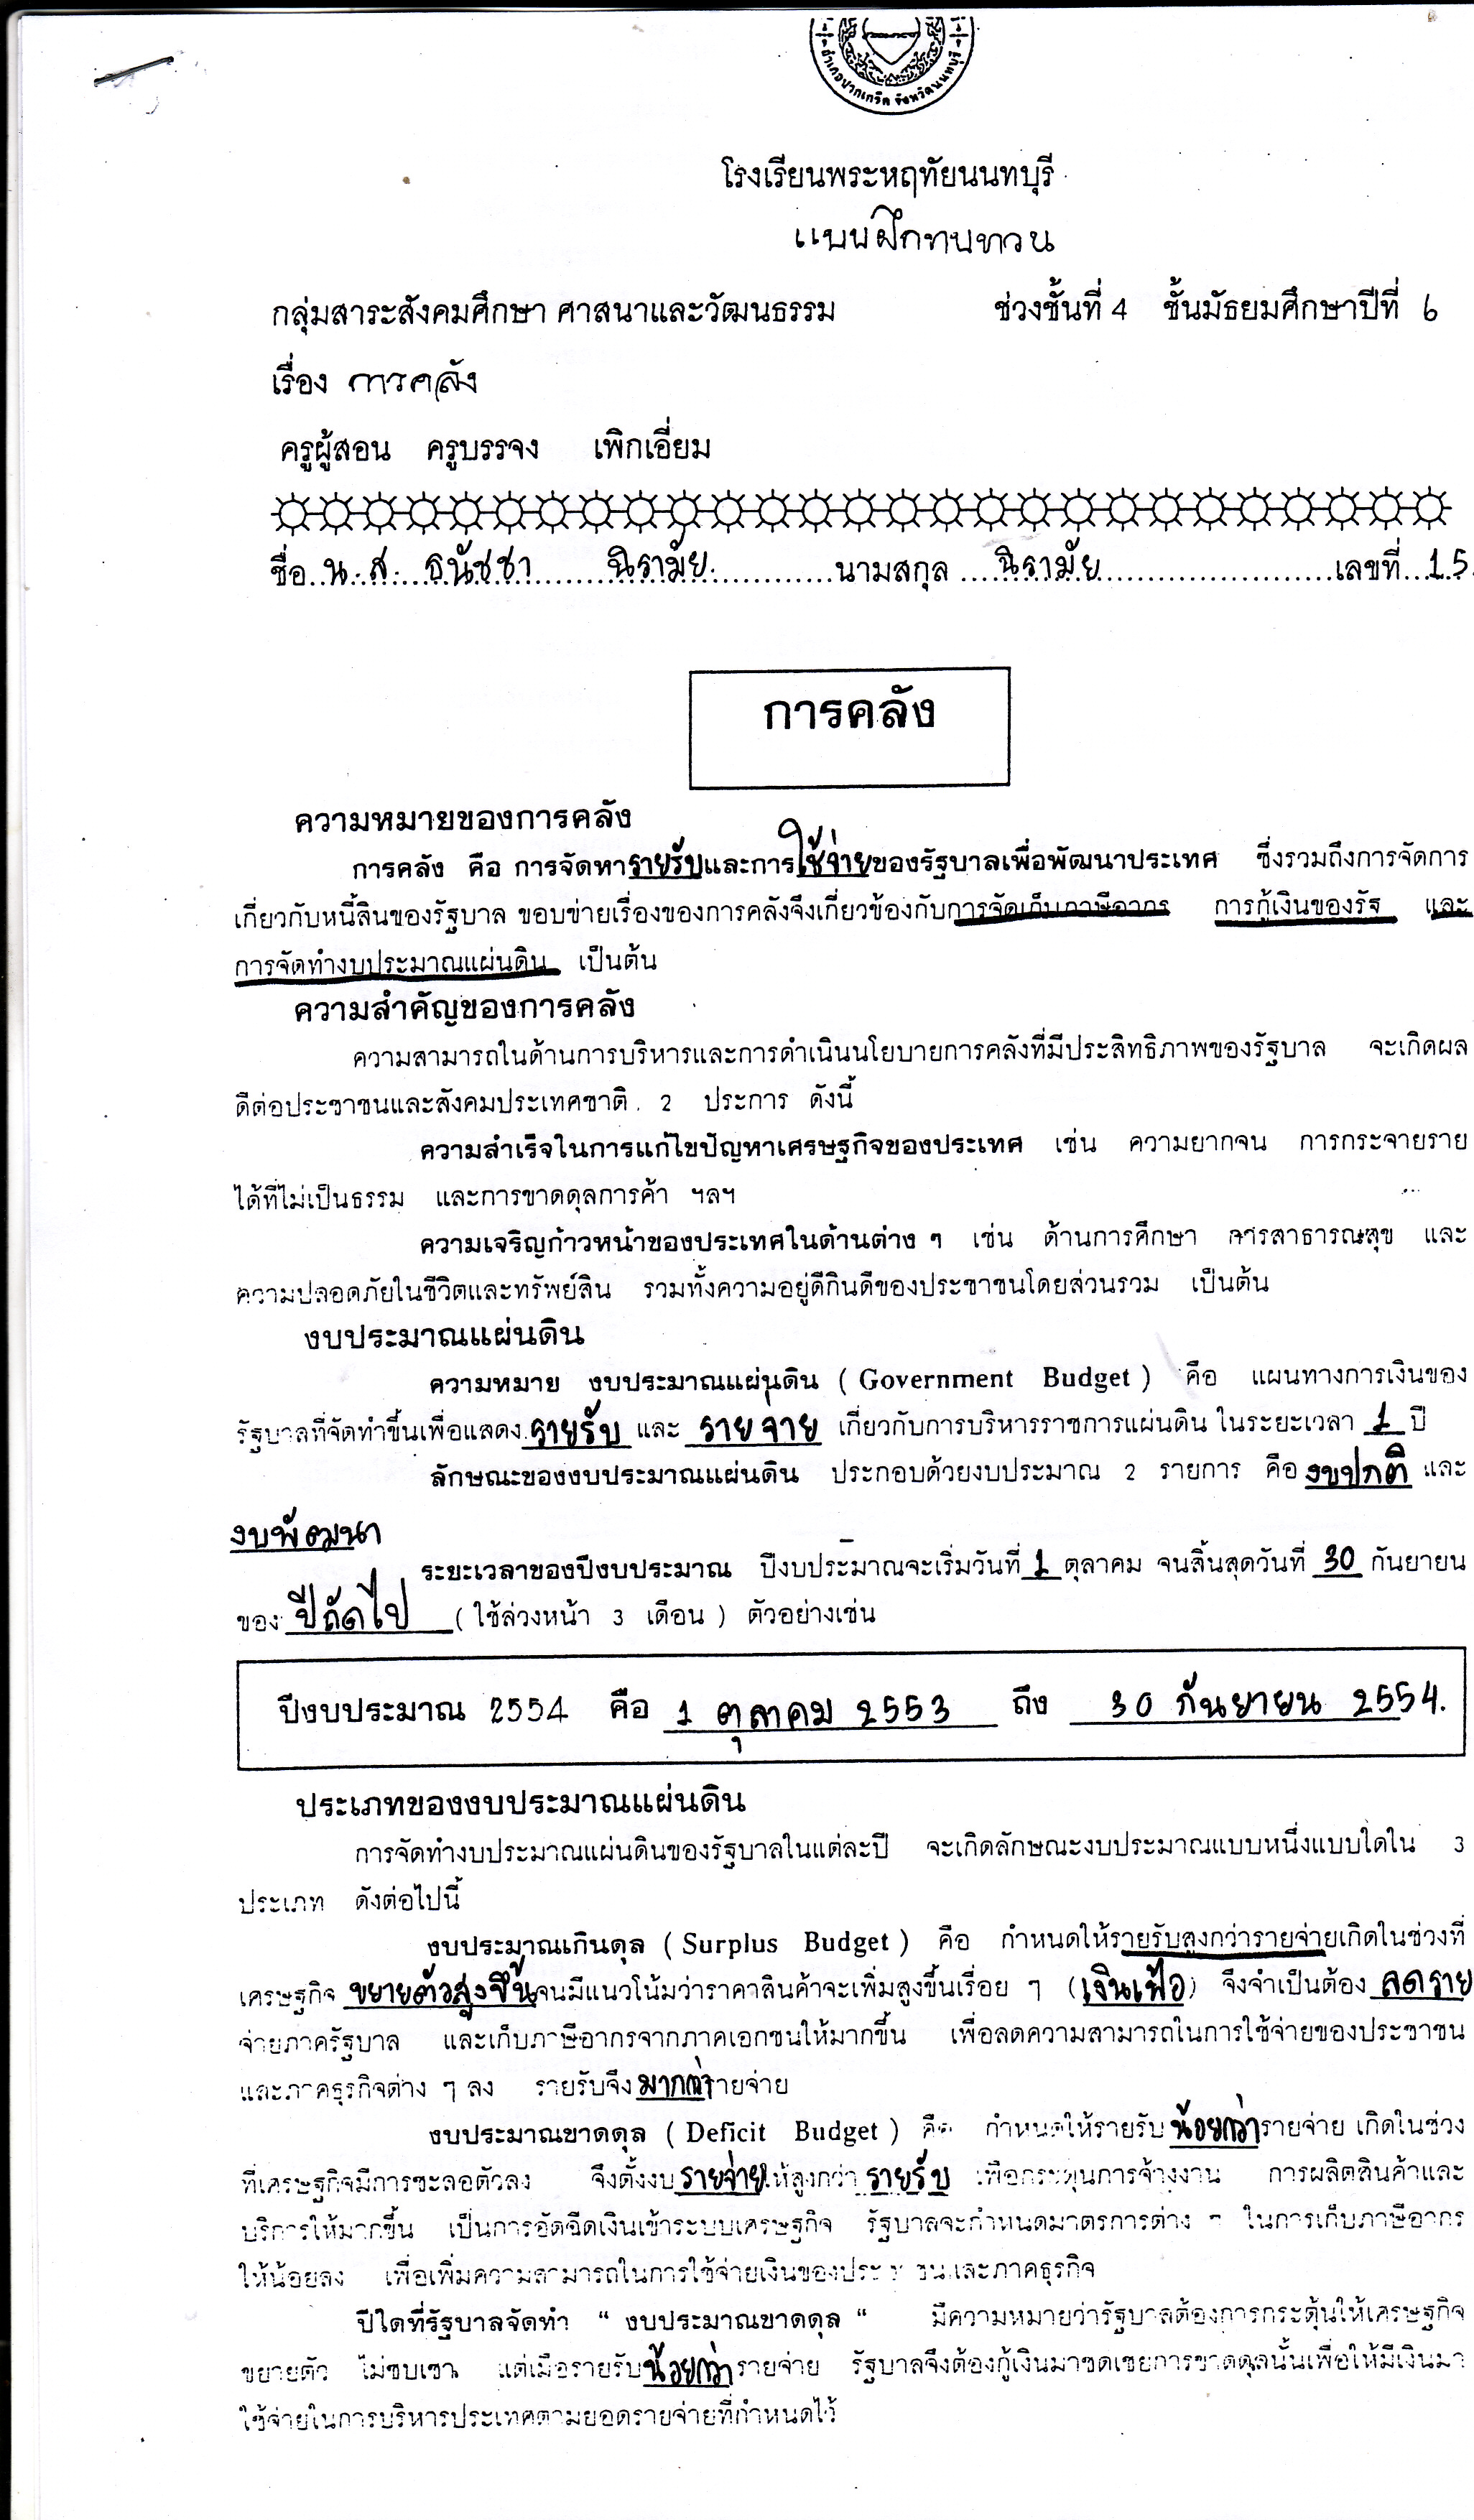 อำเภอปากเกร็ด จังหวัดนนทบุรี
โรงเรียนพระหฤทัยนนทบุรี
แบบฝึกทบทวน
กลุ่มสาระสังคมศึกษา ศาสนาและวัฒนธรรม ช่วงชั้นที่ 4 ชั้นมัธยมศึกษาปีที่ 6
เรื่อง การคลัง
ครูผู้สอน ครูบรรจง เพิกเอี่ยม
ชื่อ..น.ส. ธนัชชา ฉิรามัย............นามสกุล ....ฉิรามัย................เลขที่....15.
การคลัง
ความหมายของการคลัง
การคลัง คือ การจัดหารายรับและการใช้จ่ายของรัฐบาลเพื่อพัฒนาประเทศ ซึ่งรวมถึงการจัดการ
เกี่ยวกับหนี้สินของรัฐบาล ขอบข่ายเรื่องของการคลังจึงเกี่ยวข้องกับการจัดเก็บภาษีอากร การกู้เงินของรัฐ และ
การจัดทำงบประมาณแผ่นดิน เป็นต้น
ความสำคัญของการคลัง
ความสามารถในด้านการบริหารและการดำเนินนโยบายการคลังที่มีประสิทธิภาพของรัฐบาล จะเกิดผล
ดีต่อประชาชนและสังคมประเทศชาติ 2 ประการ ดังนี้
ความสำเร็จในการแก้ไขปัญหาเศรษฐกิจของประเทศ เช่น ความยากจน การกระจายราย
ได้ที่ไม่เป็นธรรม และการขาดดุลการค้า ฯลฯ
ความเจริญก้าวหน้าของประเทศในด้านต่าง ๆ เช่น ด้านการศึกษา การสาธารณสุข และ
ความปลอดภัยในชีวิตและทรัพย์สิน รวมทั้งความอยู่ดีกินดีของประชาชนโดยส่วนรวม เป็นต้น
งบประมาณแผ่นดิน
ความหมาย งบประมาณแผ่นดิน ( Government Budget ) คือ แผนทางการเงินของ
รัฐบาลที่จัดทำขึ้นเพื่อแสดง รายรับ และ รายจ่าย เกี่ยวกับการบริหารราชการแผ่นดิน ในระยะเวลา 1 ปี
ลักษณะของงบประมาณแผ่นดิน ประกอบด้วยงบประมาณ 2 รายการ คือ งบปกติ และ
งบพัฒนา
ระยะเวลาของปีงบประมาณ ปีงบประมาณจะเริ่มวันที่ 1 ตุลาคม จนสิ้นสุดวันที่ 30 กันยายน
ของ ปีถัดไป ( ใช้ล่วงหน้า 3 เดือน ) ตัวอย่างเช่น
ปีงบประมาณ 2554 คือ 1 ตุลาคม 2553 ถึง 30 กันยายน 2554.
ประเภทของงบประมาณแผ่นดิน
การจัดทำงบประมาณแผ่นดินของรัฐบาลในแต่ละปี จะเกิดลักษณะงบประมาณแบบหนึ่งแบบใดใน 3
ประเภท ดังต่อไปนี้
งบประมาณเกินดุล ( Surplus Budget ) คือ กำหนดให้รายรับสูงกว่ารายจ่ายเกิดในช่วงที่
เศรษฐกิจ ขยายตัวสูงขึ้นจนมีแนวโน้มว่าราคาสินค้าจะเพิ่มสูงขึ้นเรื่อย ๆ (เงินเฟ้อ) จึงจำเป็นต้อง ลดราย
จ่ายภาครัฐบาล และเก็บภาษีอากรจากภาคเอกชนให้มากขึ้น เพื่อลดความสามารถในการใช้จ่ายของประชาชน
และภาคธุรกิจต่าง ๆ ลง รายรับจึงมากกว่ารายจ่าย
งบประมาณขาดดุล ( Deficit Budget ) คือ กำหนดให้รายรับ น้อยกว่ารายจ่าย เกิดในช่วง
ที่เศรษฐกิจมีการชะลอตัวลง จึงตั้งงบรายจ่ายให้สูงกว่า รายรับ เพื่อกระตุ้นการจ้างงาน การผลิตสินค้าและ
บริการให้มากขึ้น เป็นการอัดฉีดเงินเข้าระบบเศรษฐกิจ รัฐบาลจะกำหนดมาตรการต่าง ๆ ในการเก็บภาษีอากร
ให้น้อยลง เพื่อเพิ่มความสามารถในการใช้จ่ายเงินของประชาชนและภาคธุรกิจ
ปีใดที่รัฐบาลจัดทำ “ งบประมาณขาดดุล “ มีความหมายว่ารัฐบาลต้องการกระตุ้นให้เศรษฐกิจ
ขยายตัว ไม่ซบเซา แต่เมื่อรายรับน้อยกว่ารายจ่าย รัฐบาลจึงต้องกู้เงินมาชดเชยการขาดดุลนั้นเพื่อให้มีเงินมา
ใช้จ่ายในการบริหารประเทศตามยอดรายจ่ายที่กำหนดไว้